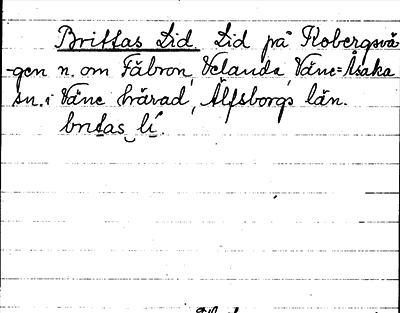 Brittas Lid Lid på Kobergsvä
-gen n. om Fäbron, Velanda, Väne-Åsaka
sn. i Väne härad, Älfsborgs län.
britas lí.